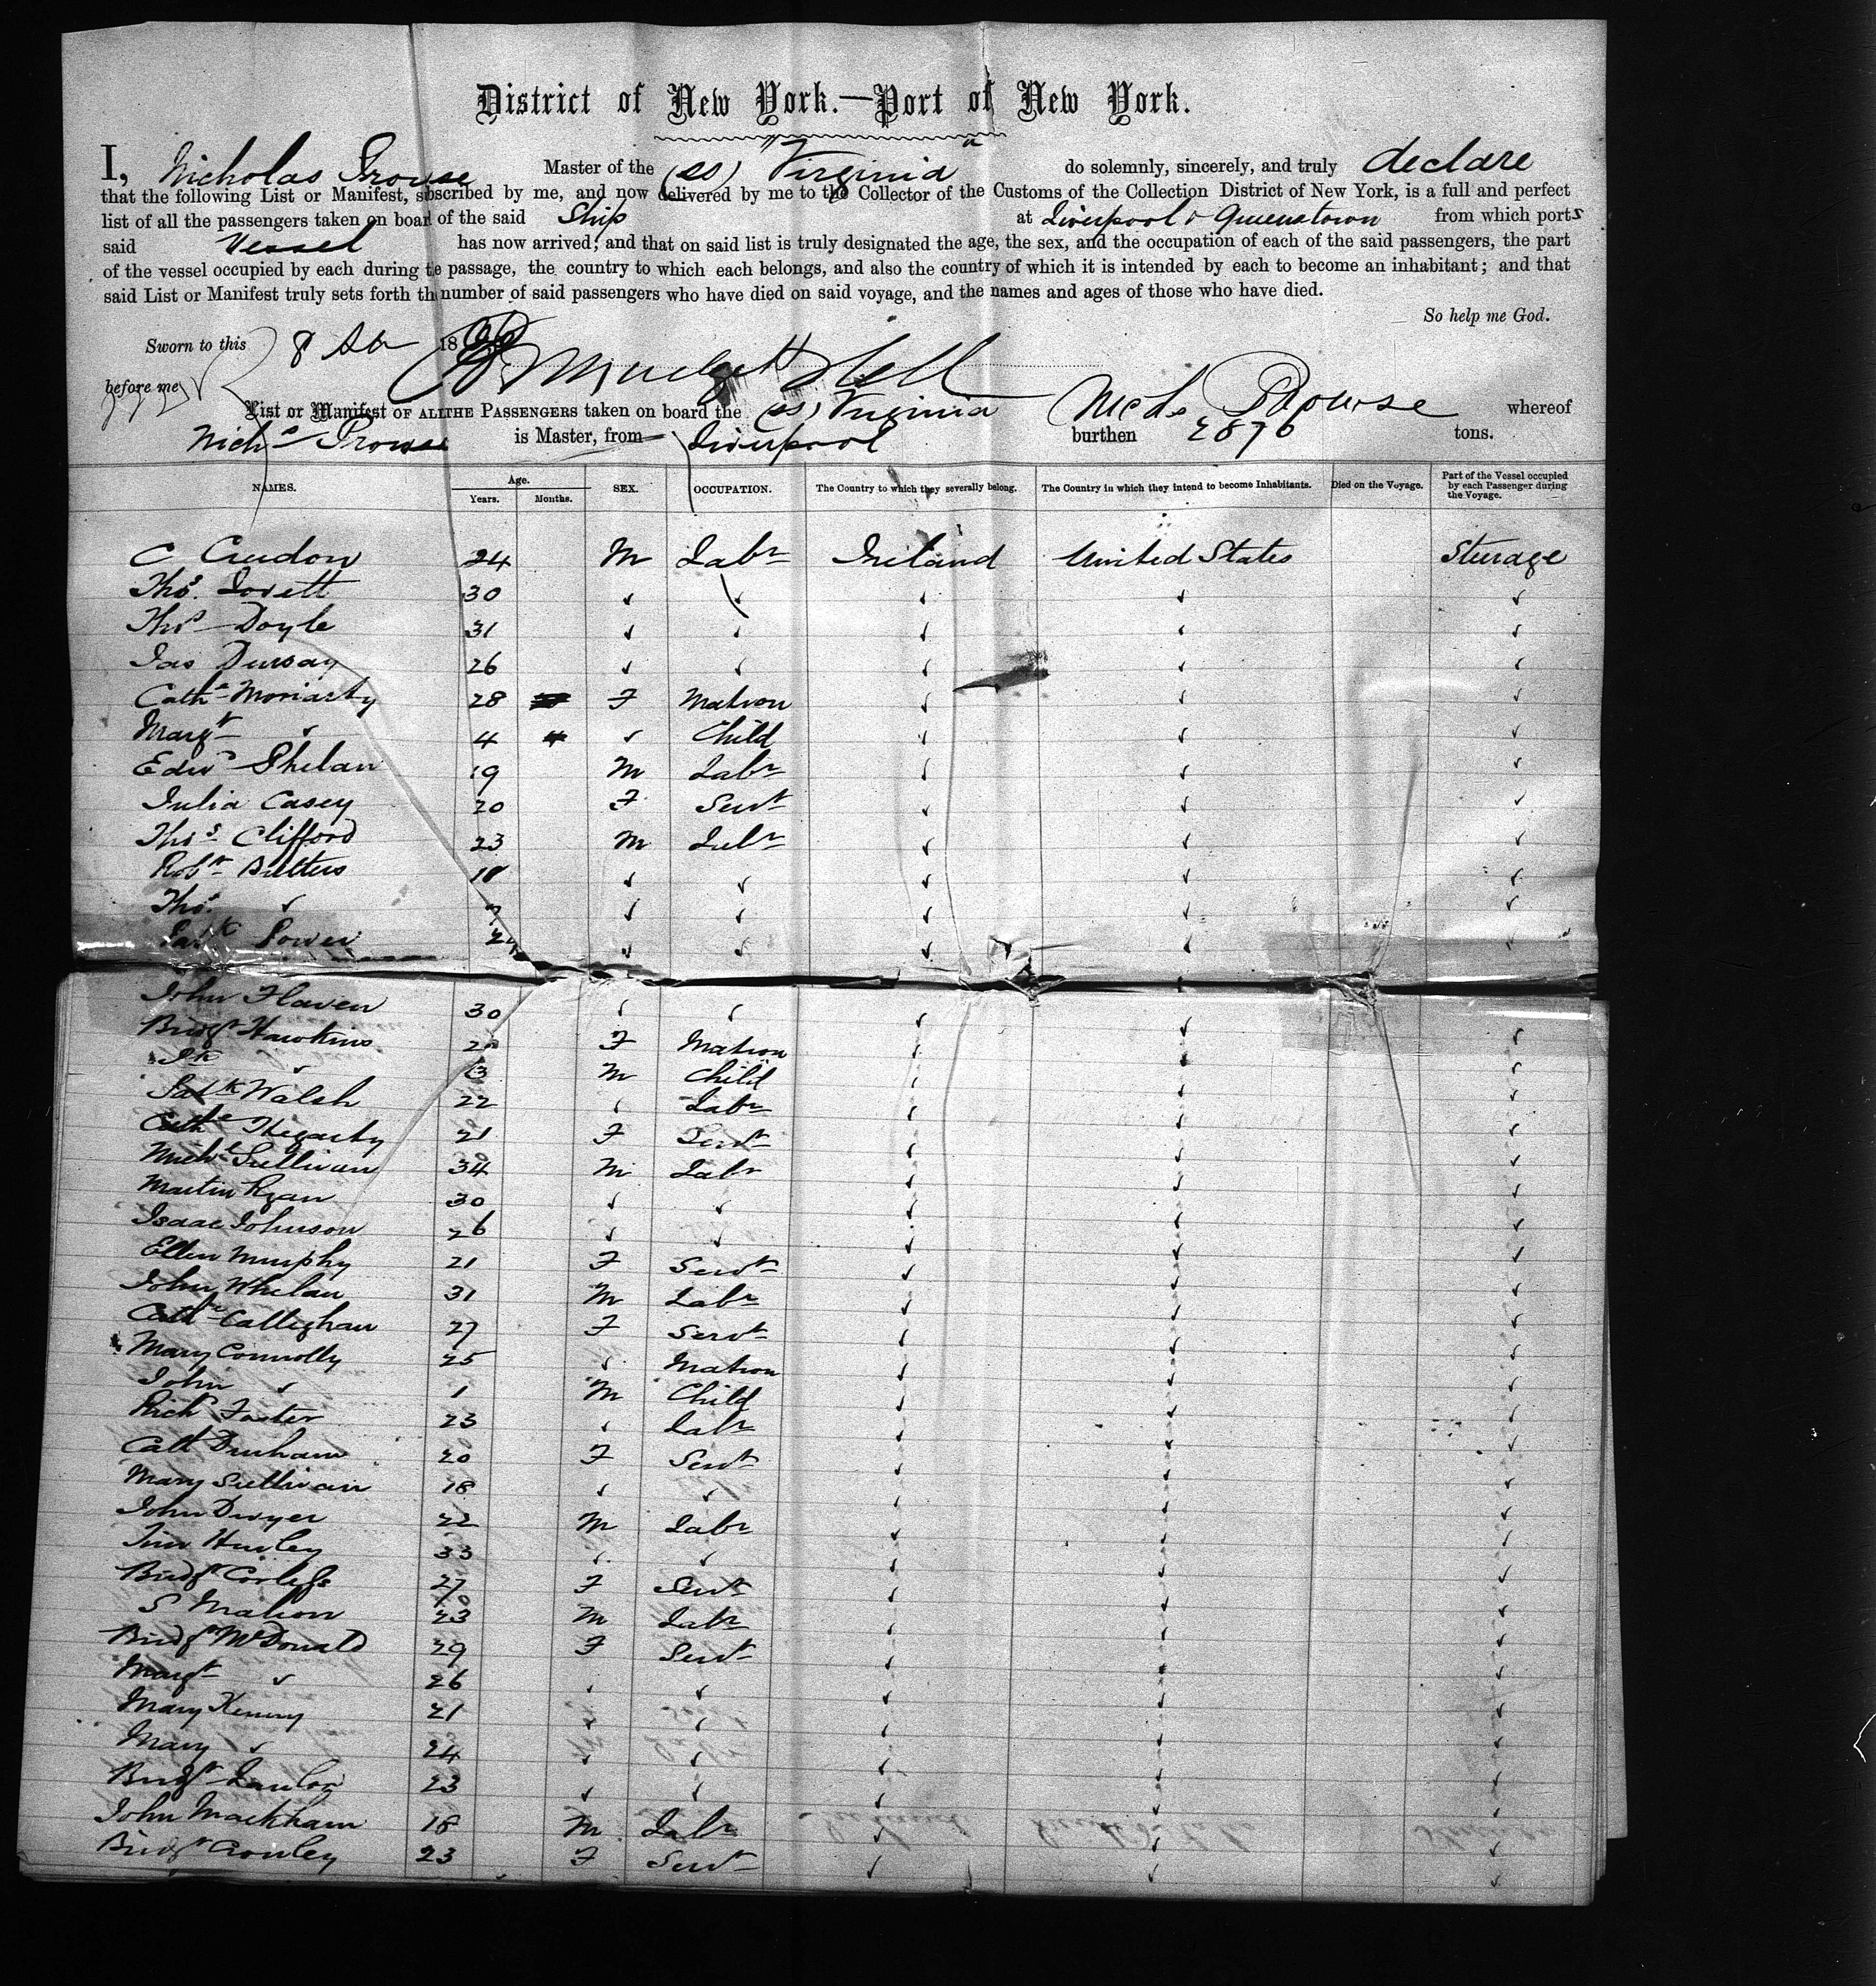 District of New York.—Port of New York.
I, Nicholas Prowse Master of the (ss) "Virginia" do solemnly, sincerely, and truly declare
that the following List or Manifest, sbscribed by me, and now delivered by me to the Collector of the Customs of the Collection District of New York, is a full and perfect
list of all the passengers taken on boar of the said Ship at Liverpool & Queenstown from which ports
said Vessel has now arrived; and that on said list is truly designated the age, the sex, and the occupation of each of the said passengers, the part
of the vessel occupied by each during te passage, the country to which each belongs, and also the country of which it is intended by each to become an inhabitant; and that
said List or Manifest truly sets forth th number of said passengers who have died on said voyage, and the names and ages of those who have died.
So help me God.
Sworn to this 8 18
before me
List or Manifest OF ALL THE PASSENGERS taken on board the (ss) Virginia whereof
Nichs Prowse is Master, from Liverpool burthen 2876 tons.
Nichs Prowse
NAMES. Age. Years. Months. SEX. OCCUPATION. The Country to which they severally belong. The Country in which they intend to become Inhabitants. Died on the Voyage. Part of the Vessel occupied by each Passenger during the Voyage.
C 24 M Labr Ireland United States Steerage
Thos. Lovett 30 ✓ ✓ ✓ ✓ ✓
Thos Doyle 31 ✓ ✓ ✓ ✓ ✓
Jas 26 ✓ ✓ ✓ ✓ ✓
Cathe Moriarty 28 F Matron ✓ ✓ ✓
Margt ✓ 4 ✓ Child ✓ ✓ ✓
Edwd Phelan 19 M Labr ✓ ✓ ✓
Julia Casey 20 F Servt ✓ ✓ ✓
Thos Clifford 23 M Labr ✓ ✓ ✓
Robt Butters ✓ ✓ ✓ ✓ ✓
Thos. ✓ ✓ ✓ ✓ ✓ ✓
Patk Power ✓ ✓ ✓ ✓ ✓
John Flaven 30 ✓ ✓ ✓ ✓ ✓
Bridgt Hawkins F Matron ✓ ✓ ✓
✓ M Child ✓ ✓ ✓
Patk Walsh 22 ✓ Labr ✓ ✓ ✓
Cathe Hegarty 21 F Servt ✓ ✓ ✓
Michl Sullivan 34 M Labr ✓ ✓ ✓
Martin Ryan 30 ✓ ✓ ✓ ✓ ✓
Isaac Johnson 26 ✓ ✓ ✓ ✓ ✓
Ellen Murphy 21 F Servt ✓ ✓ ✓
John Whelan 31 M Labr ✓ ✓ ✓
Cathe Calleghan 27 F Servt ✓ ✓ ✓
Mary Connolly 25 ✓ Matron ✓ ✓ ✓
John ✓ 1 M Child ✓ ✓ ✓
Richd Foster 23 ✓ Labr ✓ ✓ ✓
Cath Denham 20 F Servt ✓ ✓ ✓
Mary Sullivan 18 ✓ ✓ ✓ ✓ ✓
John Dwyer 22 M Labr ✓ ✓ ✓
Tim Hurley 33 ✓ ✓ ✓ ✓ ✓
Bridgt Corless 27 F Servt ✓ ✓ ✓
S Mahon 23 M Labr ✓ ✓ ✓
Bridgt McDonald 29 F Servt ✓ ✓ ✓
Margt ✓ 26 ✓ ✓ ✓ ✓ ✓
Mary Kenny 21 ✓ ✓ ✓ ✓ ✓
Mary ✓ 24 ✓ ✓ ✓ ✓ ✓
Bridgt Lawlor 23 ✓ ✓ ✓ ✓ ✓
John Markham 18 M Labr ✓ ✓ ✓
Bridgt Crowley 23 F Servt ✓ ✓ ✓